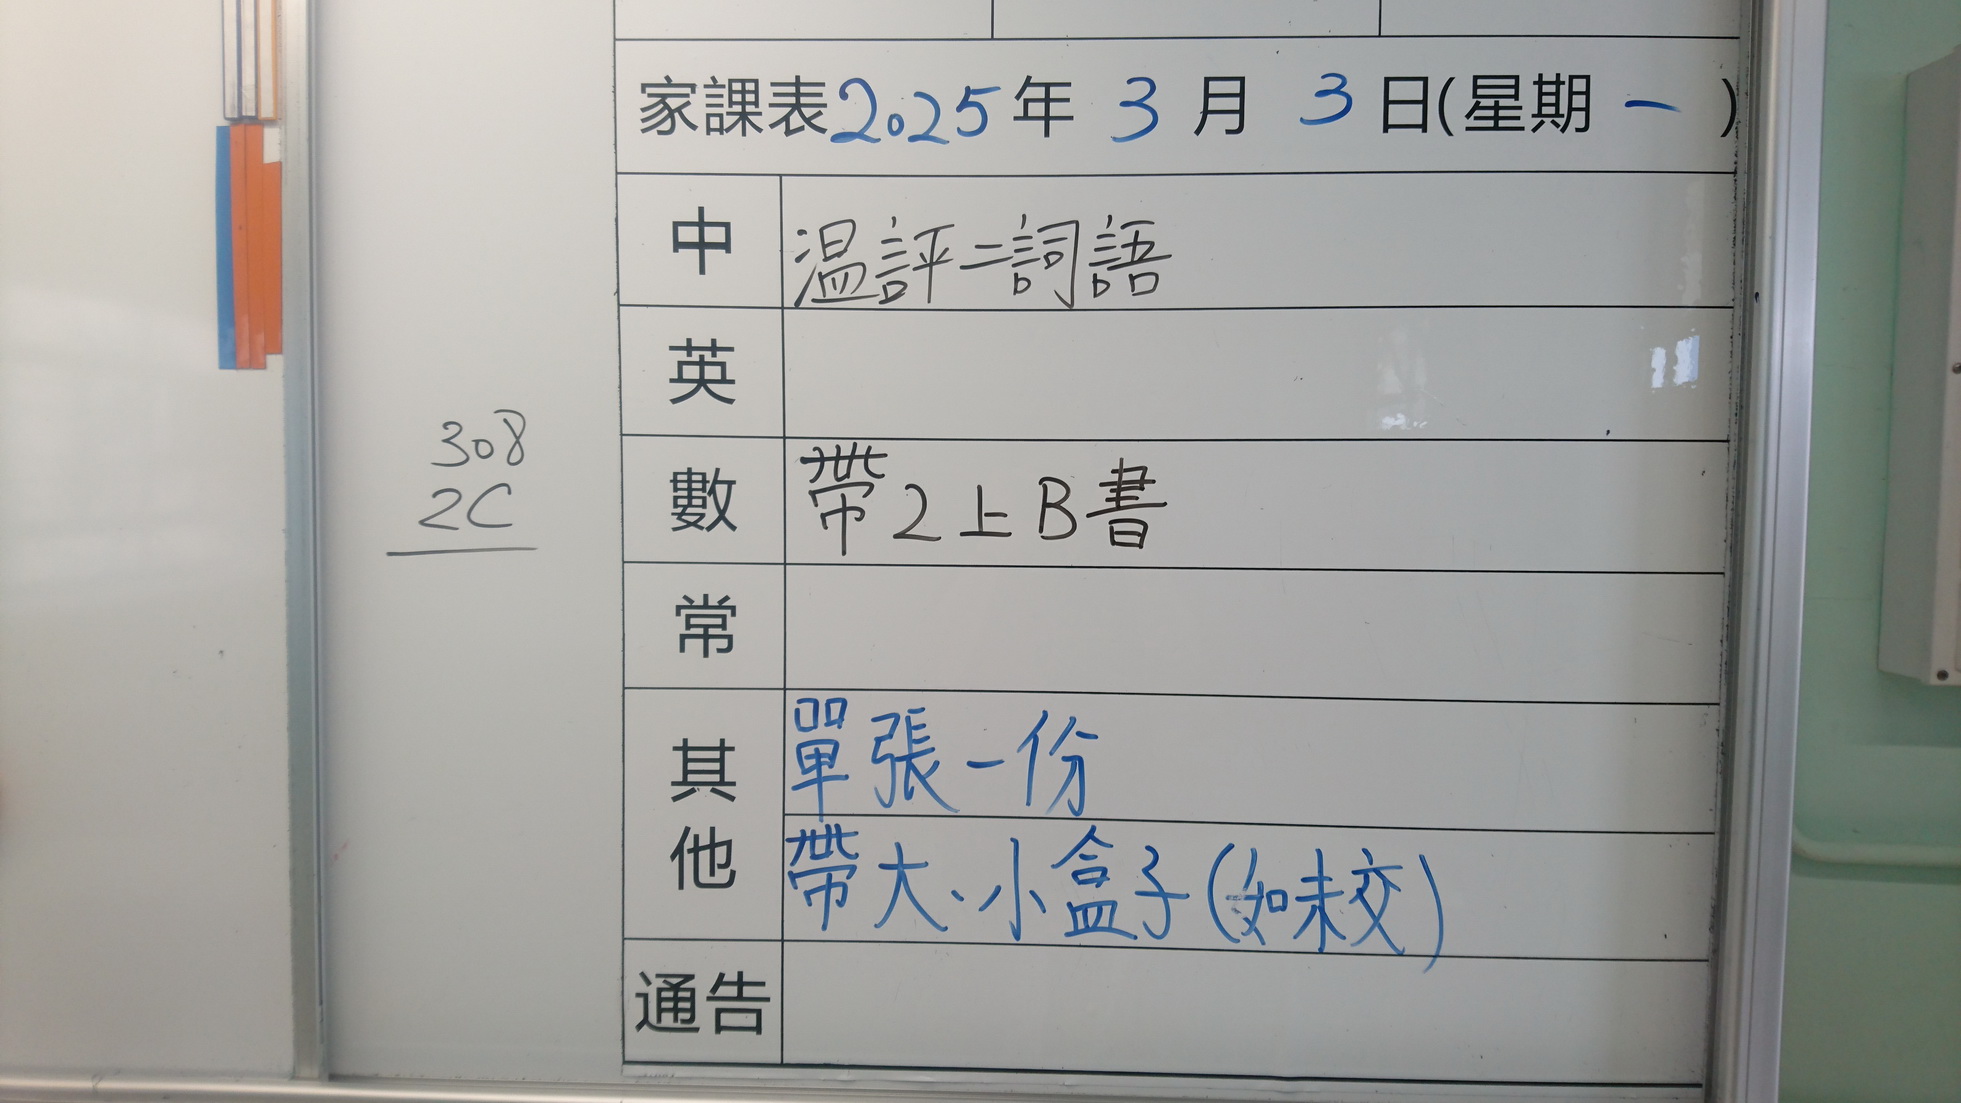 家課表2025年 3 月 3 日(星期 一 )
中 温評二詞語
英
308
2C
數 帶2上B書
常
其他
單張一份
帶大、小盒子(如未交)
通告